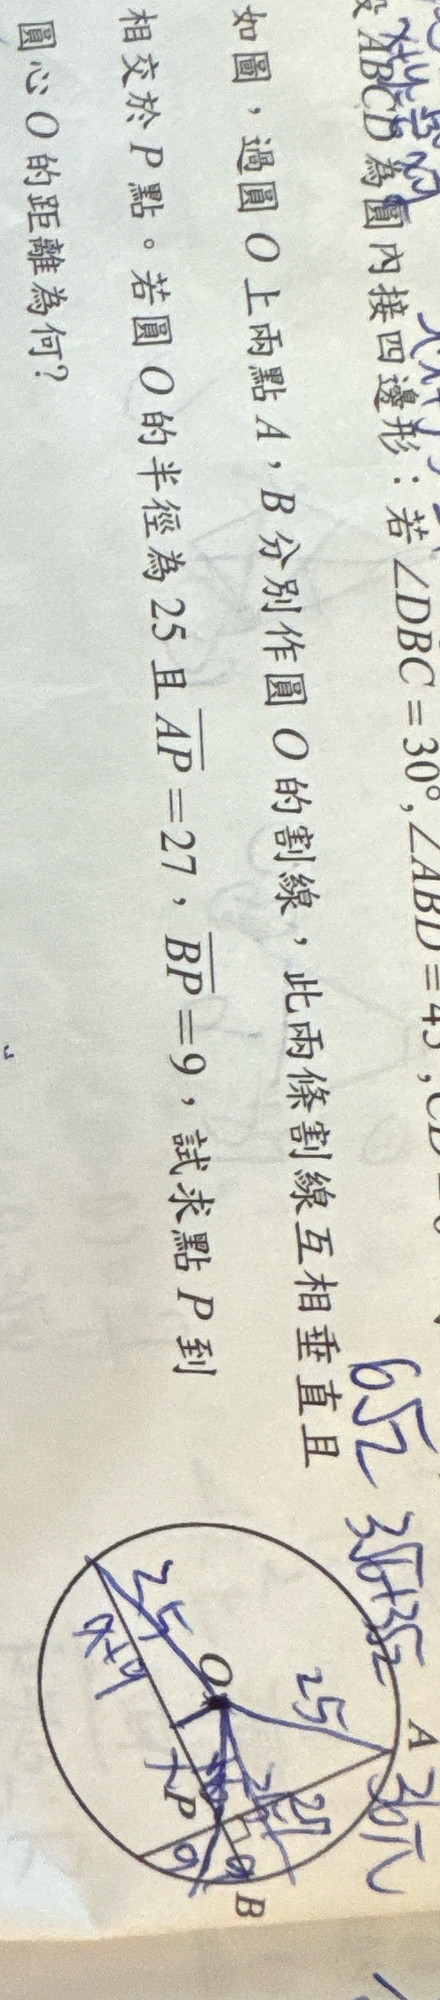 ABCD為圓內接四邊形：若∠DBC=30°,∠ABD=45
如圖，過圓O上兩點A，B分別作圓O的割線，此兩條割線互相垂直且
相交於P點。若圓O的半徑為25且AP=27，BP=9，試求點P到
圓心O的距離為何？
6√2
3√6+3√2
36π
A
25
O
25
27
x+9
x
P
9
9
B